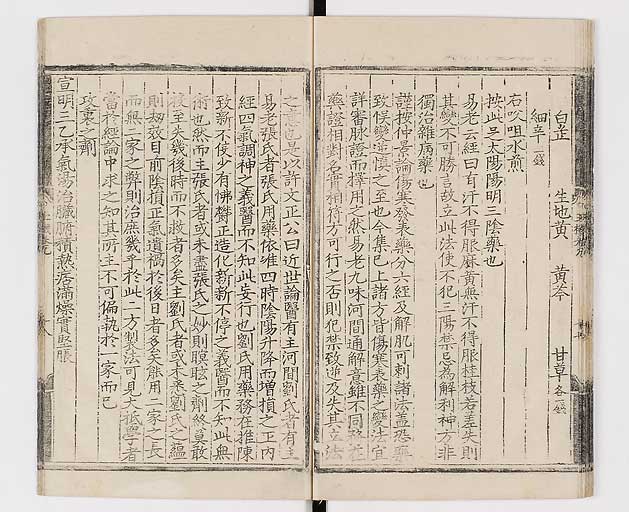 白芷 生地黃 黃芩 甘草各二錢
細辛二錢
右㕮咀水煎
按此足太陽陽明三陰藥也
易老云經曰有汗不得服麻黃無汗不得服桂枝若差失則
其變不可勝言故立此法使不犯三陽禁忌為解利神方非
獨治雜病藥也
謹按仲景論傷寒發表藥分六經及解肌可刺諸法盖恐藥
致候變逆慎之至也今集已上諸方皆傷寒表藥之變法宜
詳審脉證而擇用之然易老九味河間通解意雖不同
藥證相對名實相符方可行之否則犯禁致逆及失其立法
之意也是以許文正公曰近世論醫有主河間劉氏者有主
易老張氏者張氏用藥依准四時陰陽升降而增損之正內
經四氣調神之義醫而不知此妄行也劉氏用藥務在推陳
致新不使少有怫鬱正造化新新不停之義醫而不知此無
術也然而主張氏者或未盡張氏之妙則瞑眩之劑終莫敢
投至失幾後時而不救者多矣主劉氏者或未悉劉氏之蘊
則劫效目前陰損正氣遺禍於後日者多矣能用二家之長
而無二家之弊則治庶幾乎於此二方製法可見大抵學者
當於經論中求之知其所主不可偏執於一家而已
攻裏之劑
宣明三乙承氣湯治臟腑積熱痞滿燥實堅脹